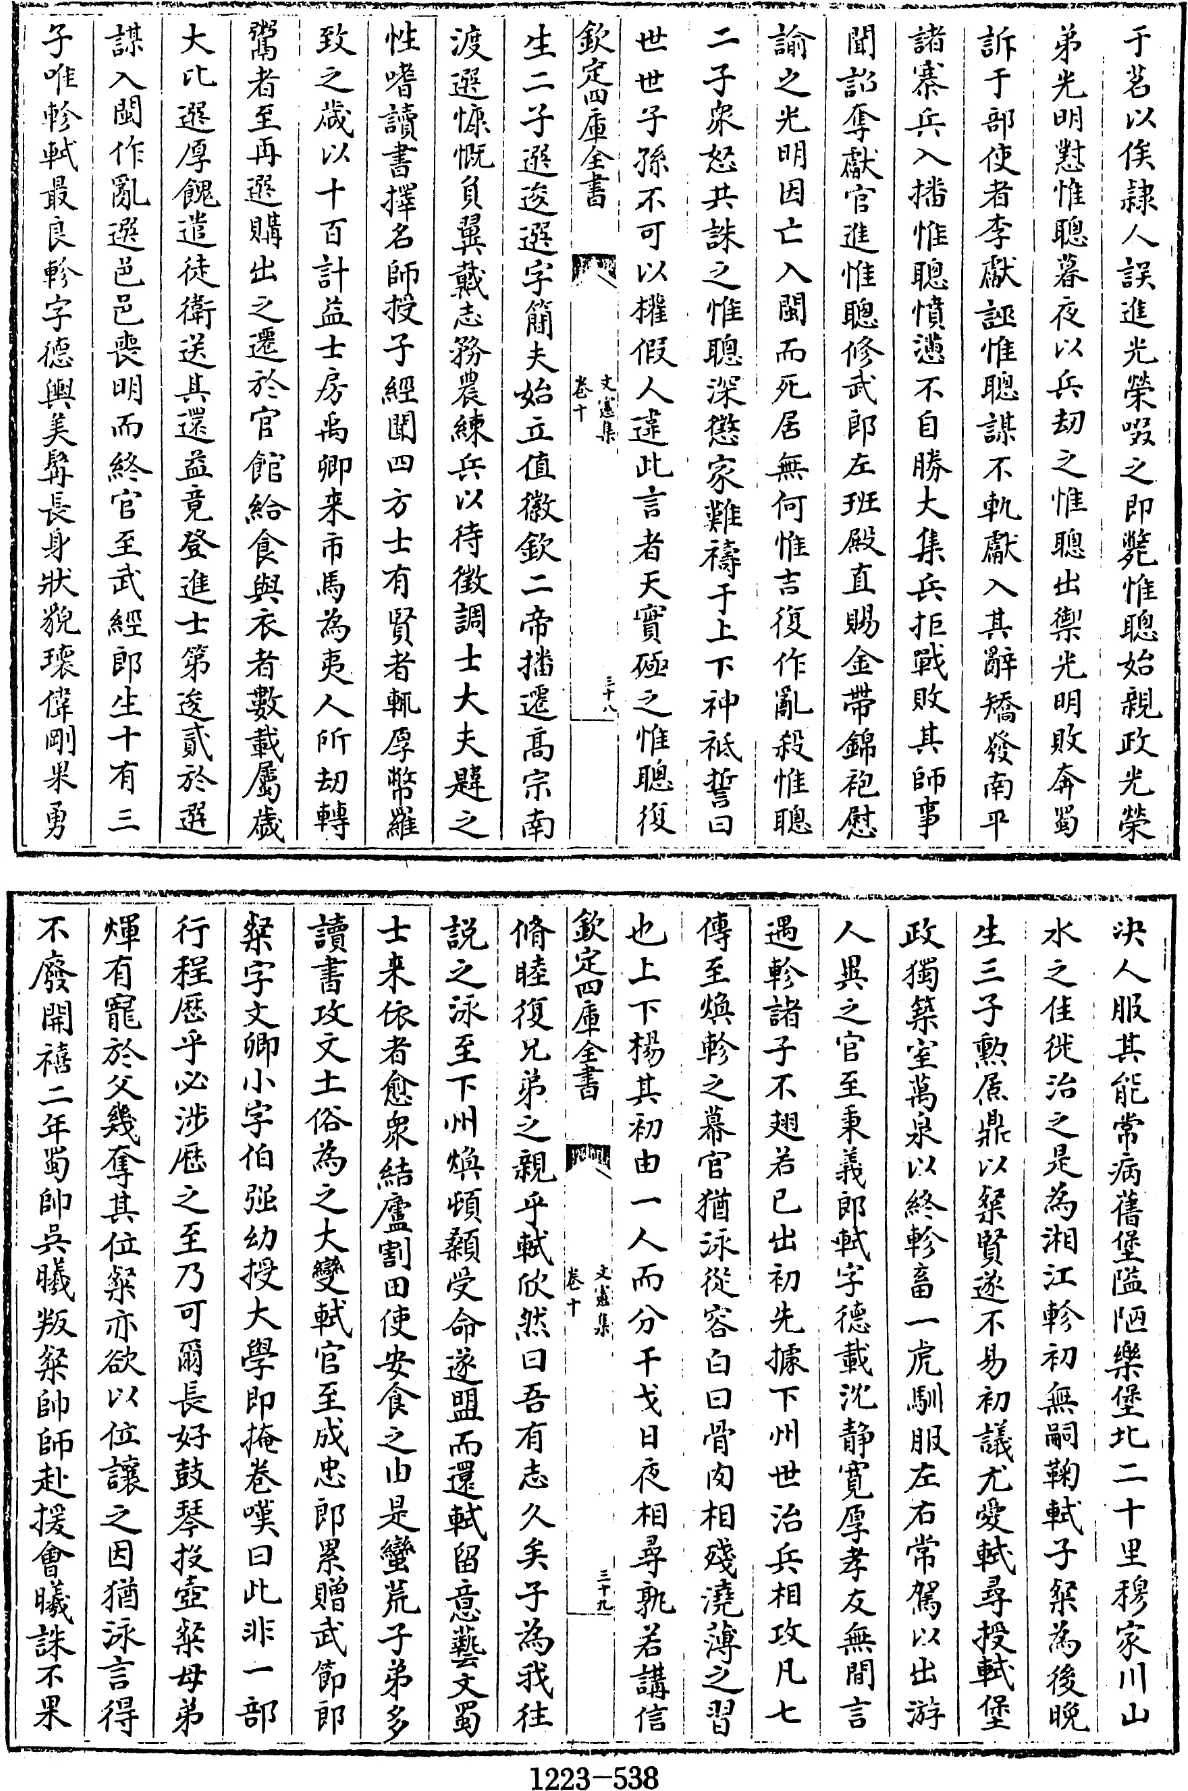 于茗以俟隷人誤進光榮啜之即斃惟聰始親政光榮
弟光明懟惟聰暮夜以兵刼之惟聰出禦光明敗奔蜀
訴于部使者李獻誣惟聰謀不軌獻入其辭矯發南平
諸寨兵入播惟聰憤懣不自勝大集兵拒戰敗其師事
聞詔奪獻官進惟聰修武郎左班殿直賜金帶錦袍慰
諭之光明因亡入閩而死居無何惟吉復作亂殺惟聰
二子衆怒共誅之惟聰深懲家難禱于上下神祇誓曰
世世子孫不可以權假人違此言者天實殛之惟聰復
欽定四庫全書
文憲集
卷十
三十八
生二子選逡選字簡夫始立值徽欽二帝播遷高宗南
渡選慷慨負翼戴志務農練兵以待徵調士大夫韙之
性嗜讀書擇名師授子經聞四方士有賢者輒厚幣羅
致之歲以十百計益士房禹卿来市馬為夷人所刼轉
鬻者至再選購出之遷於官館給食與衣者數載屬歲
大比選厚餽遣徒衛送其還益竟登進士第逡貳於選
謀入閩作亂選邑邑喪明而終官至武經郎生十有三
子唯軫軾最良軫字德輿美髯長身狀貌瓌偉剛果勇
决人服其能常病舊堡隘陋樂堡北二十里穆家川山
水之佳徙治之是為湘江軫初無嗣鞠軾子粲為後晚
生三子勲䖍鼎以粲賢遂不易初議尤愛軾尋授軾堡
政獨築室萬泉以終軫畜一虎馴服左右常駕以出游
人異之官至秉義郎軾字德載沈靜寛厚孝友無間言
遇軫諸子不翅若已出初先據下州世治兵相攻凡七
傳至煥軫之幕官猶泳從容白曰骨肉相殘澆薄之習
也上下楊其初由一人而分干戈日夜相尋孰若講信
欽定四庫全書
文憲集
卷十
三十九
脩睦復兄弟之親乎軾欣然曰吾有志久矣子為我往
説之泳至下州煥頓顙受命遂盟而還軾留意藝文蜀
士来依者愈衆結廬割田使安食之由是蠻荒子弟多
讀書攻文土俗為之大變軾官至成忠郎累贈武節郎
粲字文卿小字伯强幼授大學即掩卷嘆曰此非一部
行程歴乎必涉歴之至乃可爾長好鼓琴投壺粲母弟
煇有寵於父幾奪其位粲亦欲以位讓之因猶泳言得
不廢開禧二年蜀帥吳曦叛粲帥師赴援會曦誅不果
1223-538